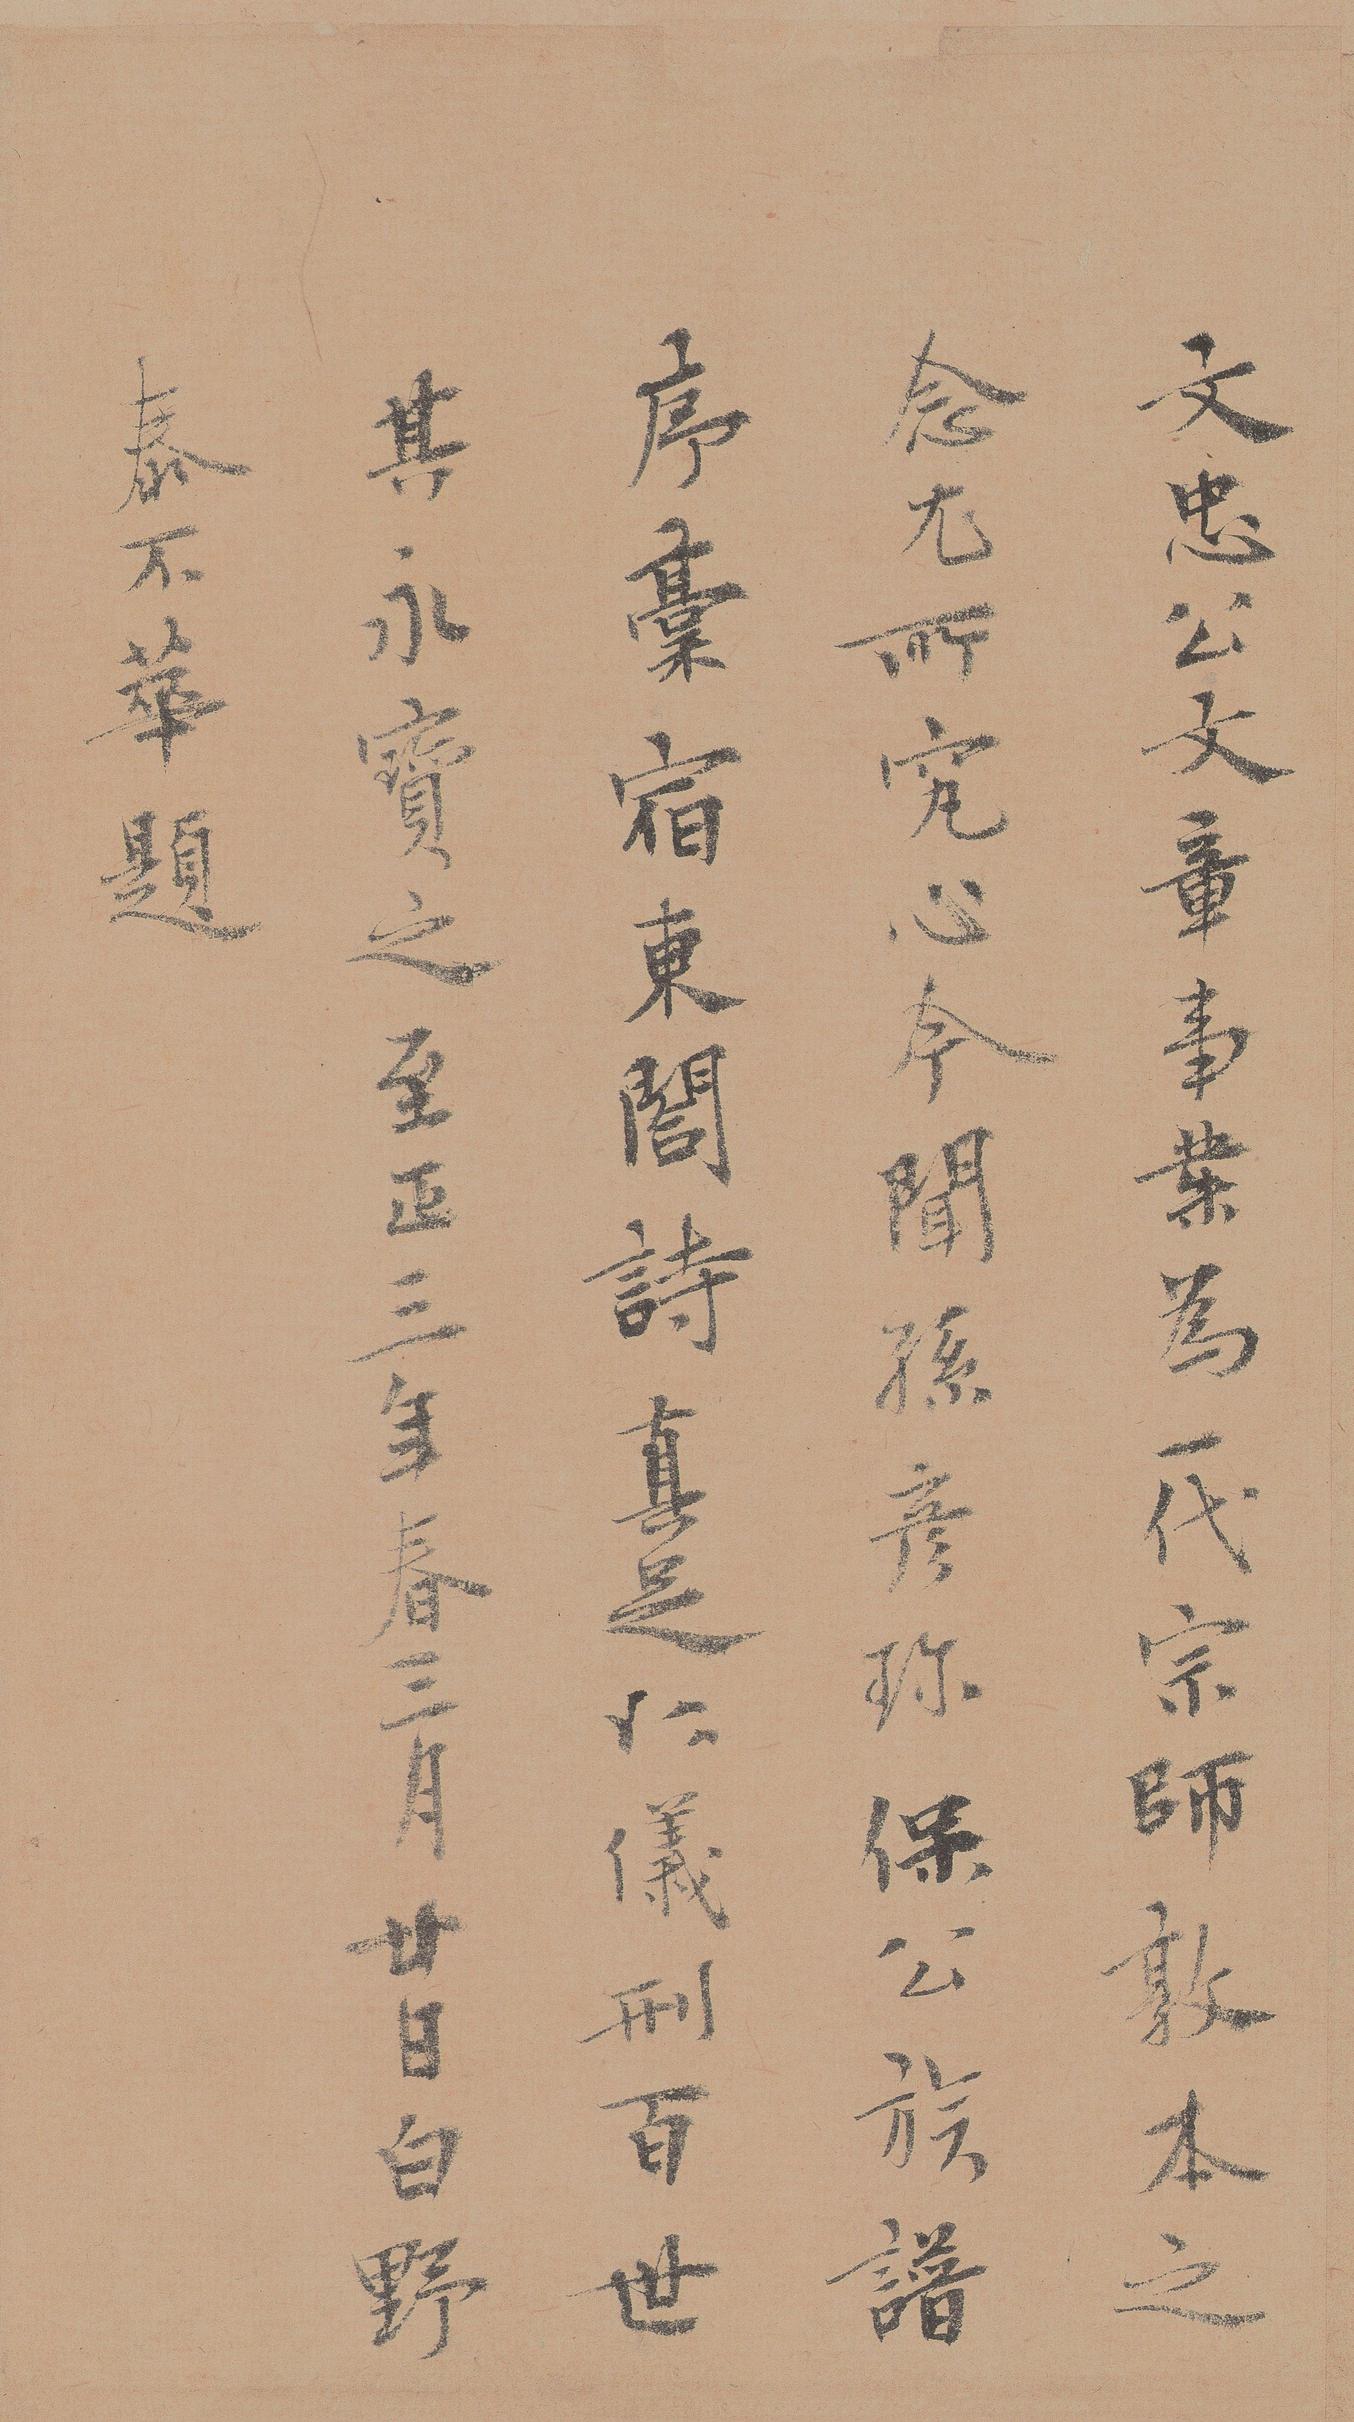 文忠公文章事業為一代宗師敦本之
念尤所究心今聞孫彥珎保公族譜
序藁宿東閤詩真足以儀刑百世
其永寶之至正三年春三月廿日白野
泰不華題